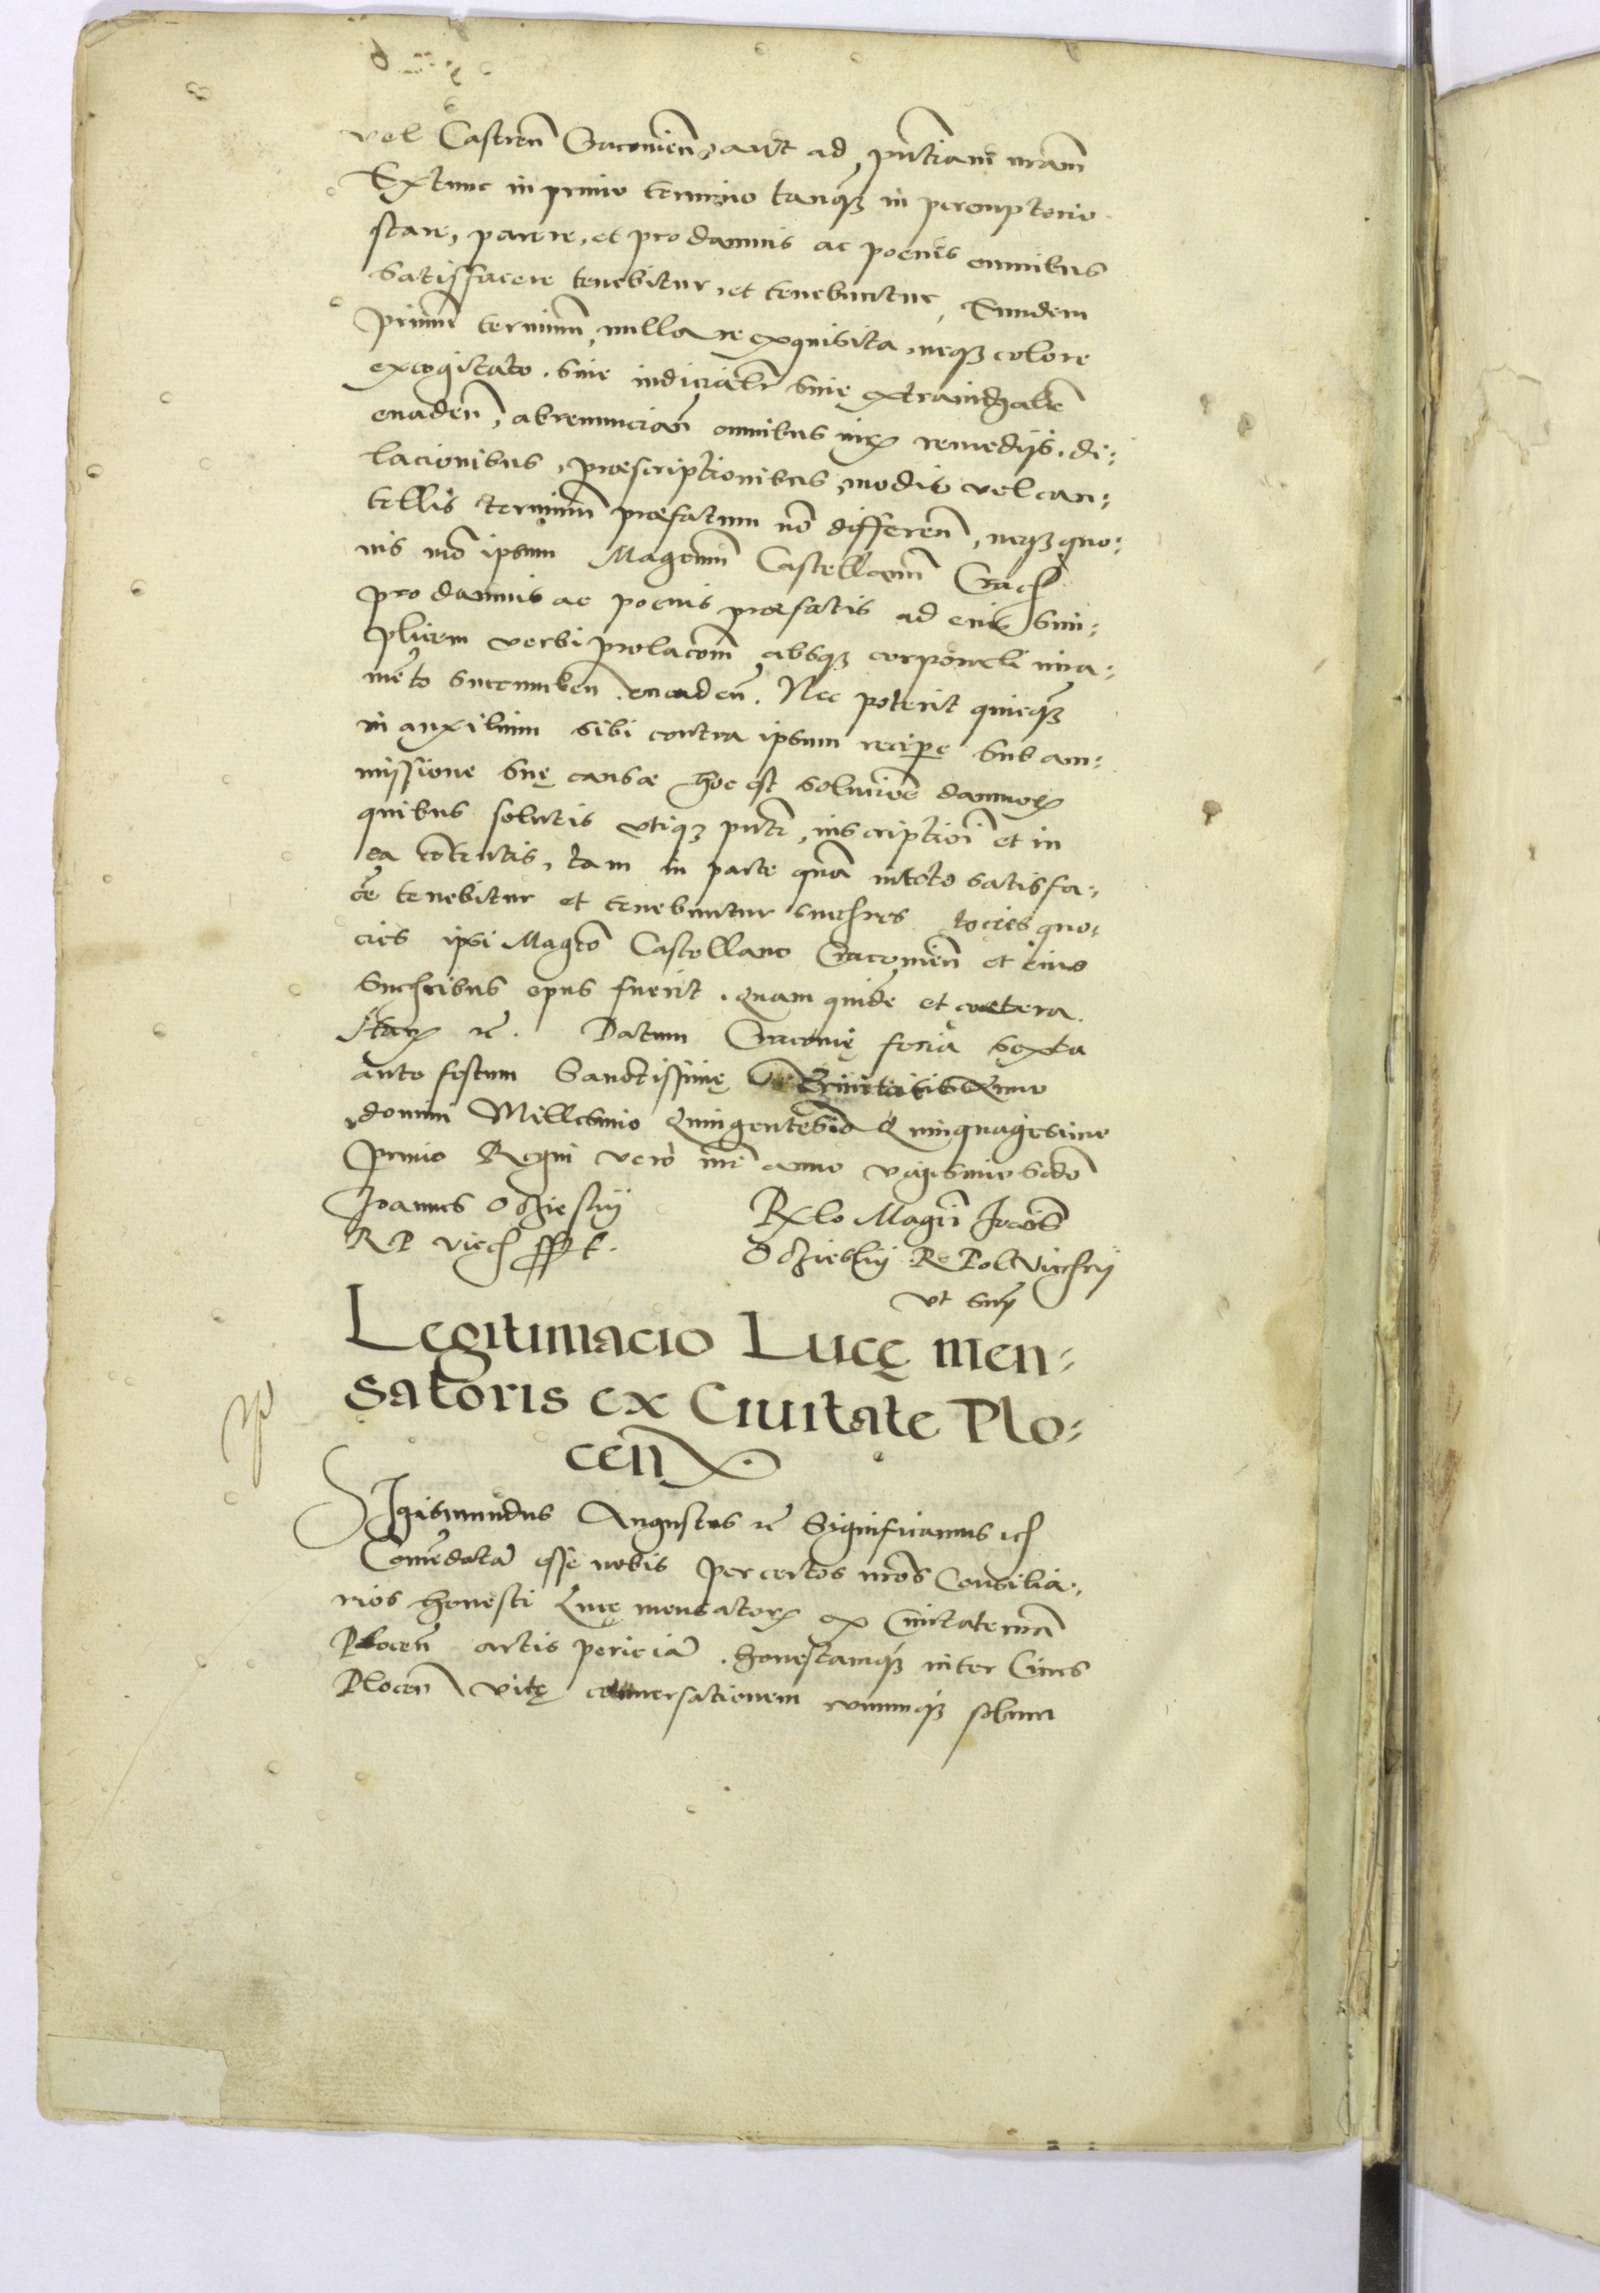 vel Castren Cracovien aut ad pntiam nram
Extunc in primo termino tanqз in peremptorio
stare, parere, et pro damnis ac poenis omnibus
satisfacere tenebitur, et tenebuntur, Eundem
primu terminu, nulla re exquisita, neqз colore
excogitato. siue judicialr siue extraiudicialr
euaden, abrenuncian omnibus iuris remedijs. di:
lacionibus, praescriptionibus, modis vel cau:
tellis terminum praefatum no differen, neqз quo:
uis mo ipsum Magcum Castellanum Crac
pro damnis ac poenis praefatis ad eius sim:
plicem verbi prolacom absqз corporali iura:
mento succumben euaden. Nec poterit quicqз
in auxilium sibi contra ipsum recipe sub am:
missione suę causae hoc est solucioe damnor
quibus solutis vtiqз pnti inscriptioi et in
ea contentis, tam in parte qua in toto satisfa:
ce tenebitur et tenebuntur succres tocies quo:
cies ipsi Magco Castellano Cracouien et eius
succribus opus fuerit. Quam quide et caetera.
Datum Cracouię feria sexta
ante festum Sanctissimę Trinitatis Anno
domini Millesimo Quingentesimo Quinquagesimo
primo Regni vero nri anno vigesimo scdo
Joannes Oczieskij
R P vicecan sspt.
Rlo Magci Joannis
Oczieskij R Pol Vicecrij
vt supra
Legitimacio Lucę men:
satoris ex Ciuitate Plo:
cen
Sigismundus Augustus rc Significamus rc
Comendata esse nobis per certos nros Consilia:
rios honesti Lucę mensatoris ex Ciuitate nra
Plocen artis pericia. honestamqз inter Ciues
Plocen vitę conuersationem eumqз solum